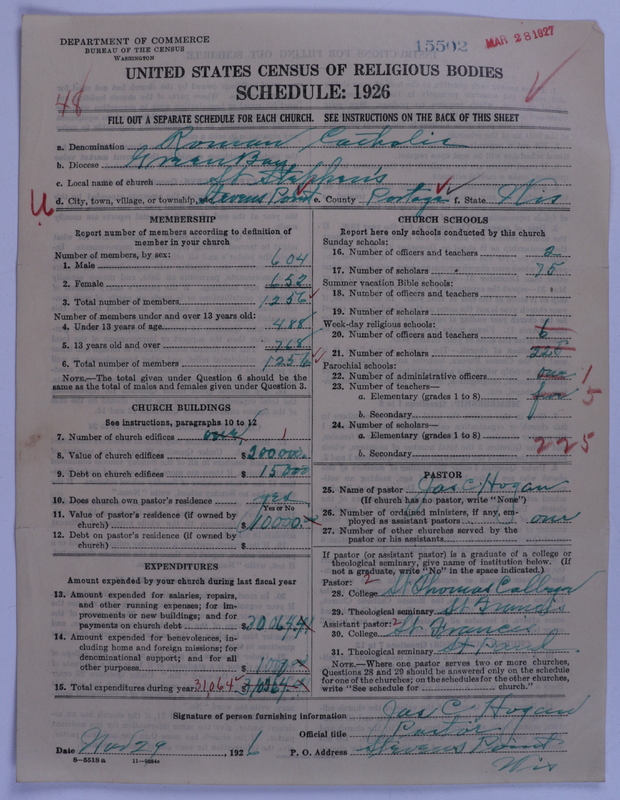 DEPARTMENT OF COMMERCE
BUREAU OF THE CENSUS
WASHINGTON
15502
MAR 28 1927
UNITED STATES CENSUS OF RELIGIOUS BODIES
SCHEDULE: 1926
48
FILL OUT A SEPARATE SCHEDULE FOR EACH CHURCH. SEE INSTRUCTIONS ON THE BACK OF THIS SHEET
a. Denomination Roman Catholic
b. Diocese Green Bay
c. Local name of church St Stephen's
d. City, town, village, or township Stevens Point e. County Portage f. State Wis
MEMBERSHIP
Report number of members according to definition of
member in your church
Number of members, by sex:
1. Male 604
2. Female 652
3. Total number of members 1256
Number of members under and over 13 years old:
4. Under 13 years of age 488
5. 13 years old and over 768
6. Total number of members 1256
NOTE.—The total given under Question 6 should be the
same as the total of males and females given under Question 3.
CHURCH BUILDINGS
See instructions, paragraphs 10 to 12
7. Number of church edifices one 1
8. Value of church edifices $ 200000
9. Debt on church edifices $ 15000
10. Does church own pastor's residence yes
Yes or No
11. Value of pastor's residence (if owned by
church) $ 10000
12. Debt on pastor's residence (if owned by
church) $
EXPENDITURES
Amount expended by your church during last fiscal year
13. Amount expended for salaries, repairs,
and other running expenses; for im-
provements or new buildings; and for
payments on church debt $
14. Amount expended for benevolences, in-
cluding home and foreign missions; for
denominational support; and for all
other purposes $
15. Total expenditures during year 31,064 $
CHURCH SCHOOLS
Report here only schools conducted by this church
Sunday schools:
16. Number of officers and teachers 2
17. Number of scholars 75
Summer vacation Bible schools:
18. Number of officers and teachers
19. Number of scholars
Week-day religious schools:
20. Number of officers and teachers 6
21. Number of scholars 225
Parochial schools:
22. Number of administrative officers one 1
23. Number of teachers—
a. Elementary (grades 1 to 8) five 5
b. Secondary
24. Number of scholars—
a. Elementary (grades 1 to 8) 225
b. Secondary
PASTOR
25. Name of pastor Jas C Hogan
(If church has no pastor, write "None")
26. Number of ordained ministers, if any, em-
ployed as assistant pastors one
27. Number of other churches served by the
pastor or his assistants
If pastor (or assistant pastor) is a graduate of a college or
theological seminary, give name of institution below. (If
not a graduate, write "No" in the space indicated.)
Pastor: 2
28. College St Thomas College
29. Theological seminary St Francis
Assistant pastor: 2
30. College St. Francis
31. Theological seminary St Paul
NOTE.—Where one pastor serves two or more churches,
Questions 28 and 29 should be answered only on the schedule
for one of the churches; on the schedules for the other churches,
write "See schedule for church."
Signature of person furnishing information Jas C Hogan
Official title Pastor
Date Nov 29, 1926 P. O. Address Stevens Point
Wis
8—5518 a